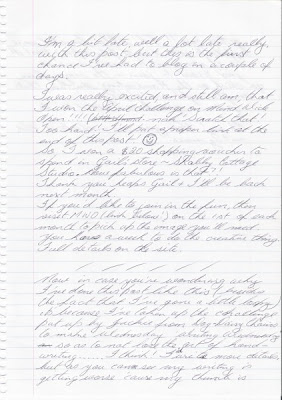 I'm a bit late, well a lot late really,
with this post but this is the first
chance I've had to blog in a couple of
days.
I was really excited and still am, that
I won the April challenge on Mind Wide
Open!!! ( with Scratch that!
Too hard! I'll put a proper link at the
end of this post!) ☺
So, I won a $20 shopping voucher to
spend in Gail's store - Shabby Cottage
Studio. How fabulous is that?!
Thank you heaps Gail & I'll be back
next month.
If you'd like to join in the fun, then
visit MWO (link below) on the 1st of each
month to pick up the image you'll need.
You have a week to do the creative thing.
Full details on the site.
Now in case you're wondering why
I've done this post like this (besides
the fact that I've gone a little batty)
it's because I've taken up the challenge
put up by from
to make Wednesday
so as to not lose the art of hand-
writing...... I think! more details
but as you can see my writing is
getting worse cause my thumb is